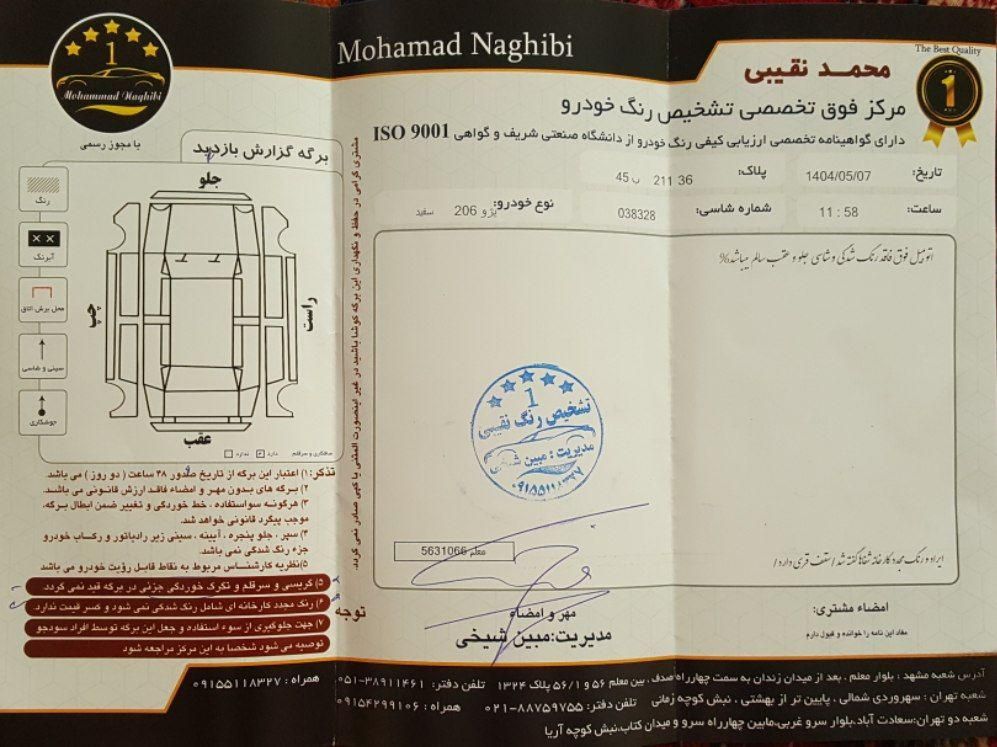 The Best Quality
1
محمد نقیبی
Mohamad Naghibi
مرکز فوق تخصصی تشخیص رنگ خودرو
دارای گواهینامه تخصصی ارزیابی کیفی رنگ خودرو از دانشگاه صنعتی شریف و گواهی ISO 9001
تاریخ: 1404/05/07 پلاک: 36 211 ب 45
ساعت: 11 : 58 شماره شاسی: 038328 نوع خودرو: پژو 206 سفید
اتومبیل فوق فاقد رنگ شدگی و شاسی جلو و عقب سالم میباشد%
1
تشخیص رنگ نقیبی
مدیریت: مبین شیخی
۰۹۱۵۵۱۱۸۳۲۷
معلم 5631066
ایراد و رنگ مجدد کارخانه شفاها گفته شد / سقف قری دارد /
امضاء مشتری:
مفاد این نامه را خوانده و قبول دارم
مهر و امضاء
مدیریت: مبین شیخی
مشتری گرامی در حفظ و نگهداری این برگه کوشا باشید در غیر اینصورت المثنی یا کپی صادر نمی گردد.
1
Mohammad Naghibi
با مجوز رسمی
برگه گزارش بازدید
رنگ
آبرنگ
محل برش اتاق
سینی و شاسی
جوشکاری
جلو
چپ
راست
عقب
صافکاری و سرقلم دارد ندارد
تذکر: ۱) اعتبار این برگه از تاریخ صدور ۴۸ ساعت ( دو روز ) می باشد.
۲) برگه های بدون مهر و امضاء فاقد ارزش قانونی می باشد.
۳) هرگونه سواستفاده ، خط خوردگی و تغییر ضمن ابطال برگه، موجب پیگرد قانونی خواهد شد.
۴) سپر ، جلو پنجره ، آیینه ، سینی زیر رادیاتور و رکاب خودرو جزء رنگ شدگی نمی باشد.
۵) نظریه کارشناس مربوط به نقاط قابل رؤیت خودرو می باشد
۵) گریسی و سرقلم و تکرک خوردگی جزئی در برگه قید نمی گردد.
۶) رنگ مجدد کارخانه ای شامل رنگ شدگی نمی شود و کسر قیمت ندارد.
توجه
۷) جهت جلوگیری از سوء استفاده و جعل این برگه توسط افراد سودجو
توصیه می شود شخصا به این مرکز مراجعه شود
آدرس شعبه مشهد : بلوار معلم . بعد از میدان زندان به سمت چهارراه صدف. بین معلم ۵۶ و ۵۶/۱ پلاک ۱۳۲۴ تلفن دفتر: ۰۵۱-۳۸۹۱۱۴۶۱ همراه : ۰۹۱۵۵۱۱۸۳۲۷
شعبه تهران : سهروردی شمالی . پایین تر از بهشتی . نبش کوچه زمانی تلفن دفتر: ۰۲۱-۸۸۷۵۹۷۵۵ همراه : ۰۹۱۵۴۲۹۹۱۰۶
شعبه دو تهران: سعادت آباد.بلوار سرو غربی.مابین چهارراه سرو و میدان کتاب.نبش کوچه آریا